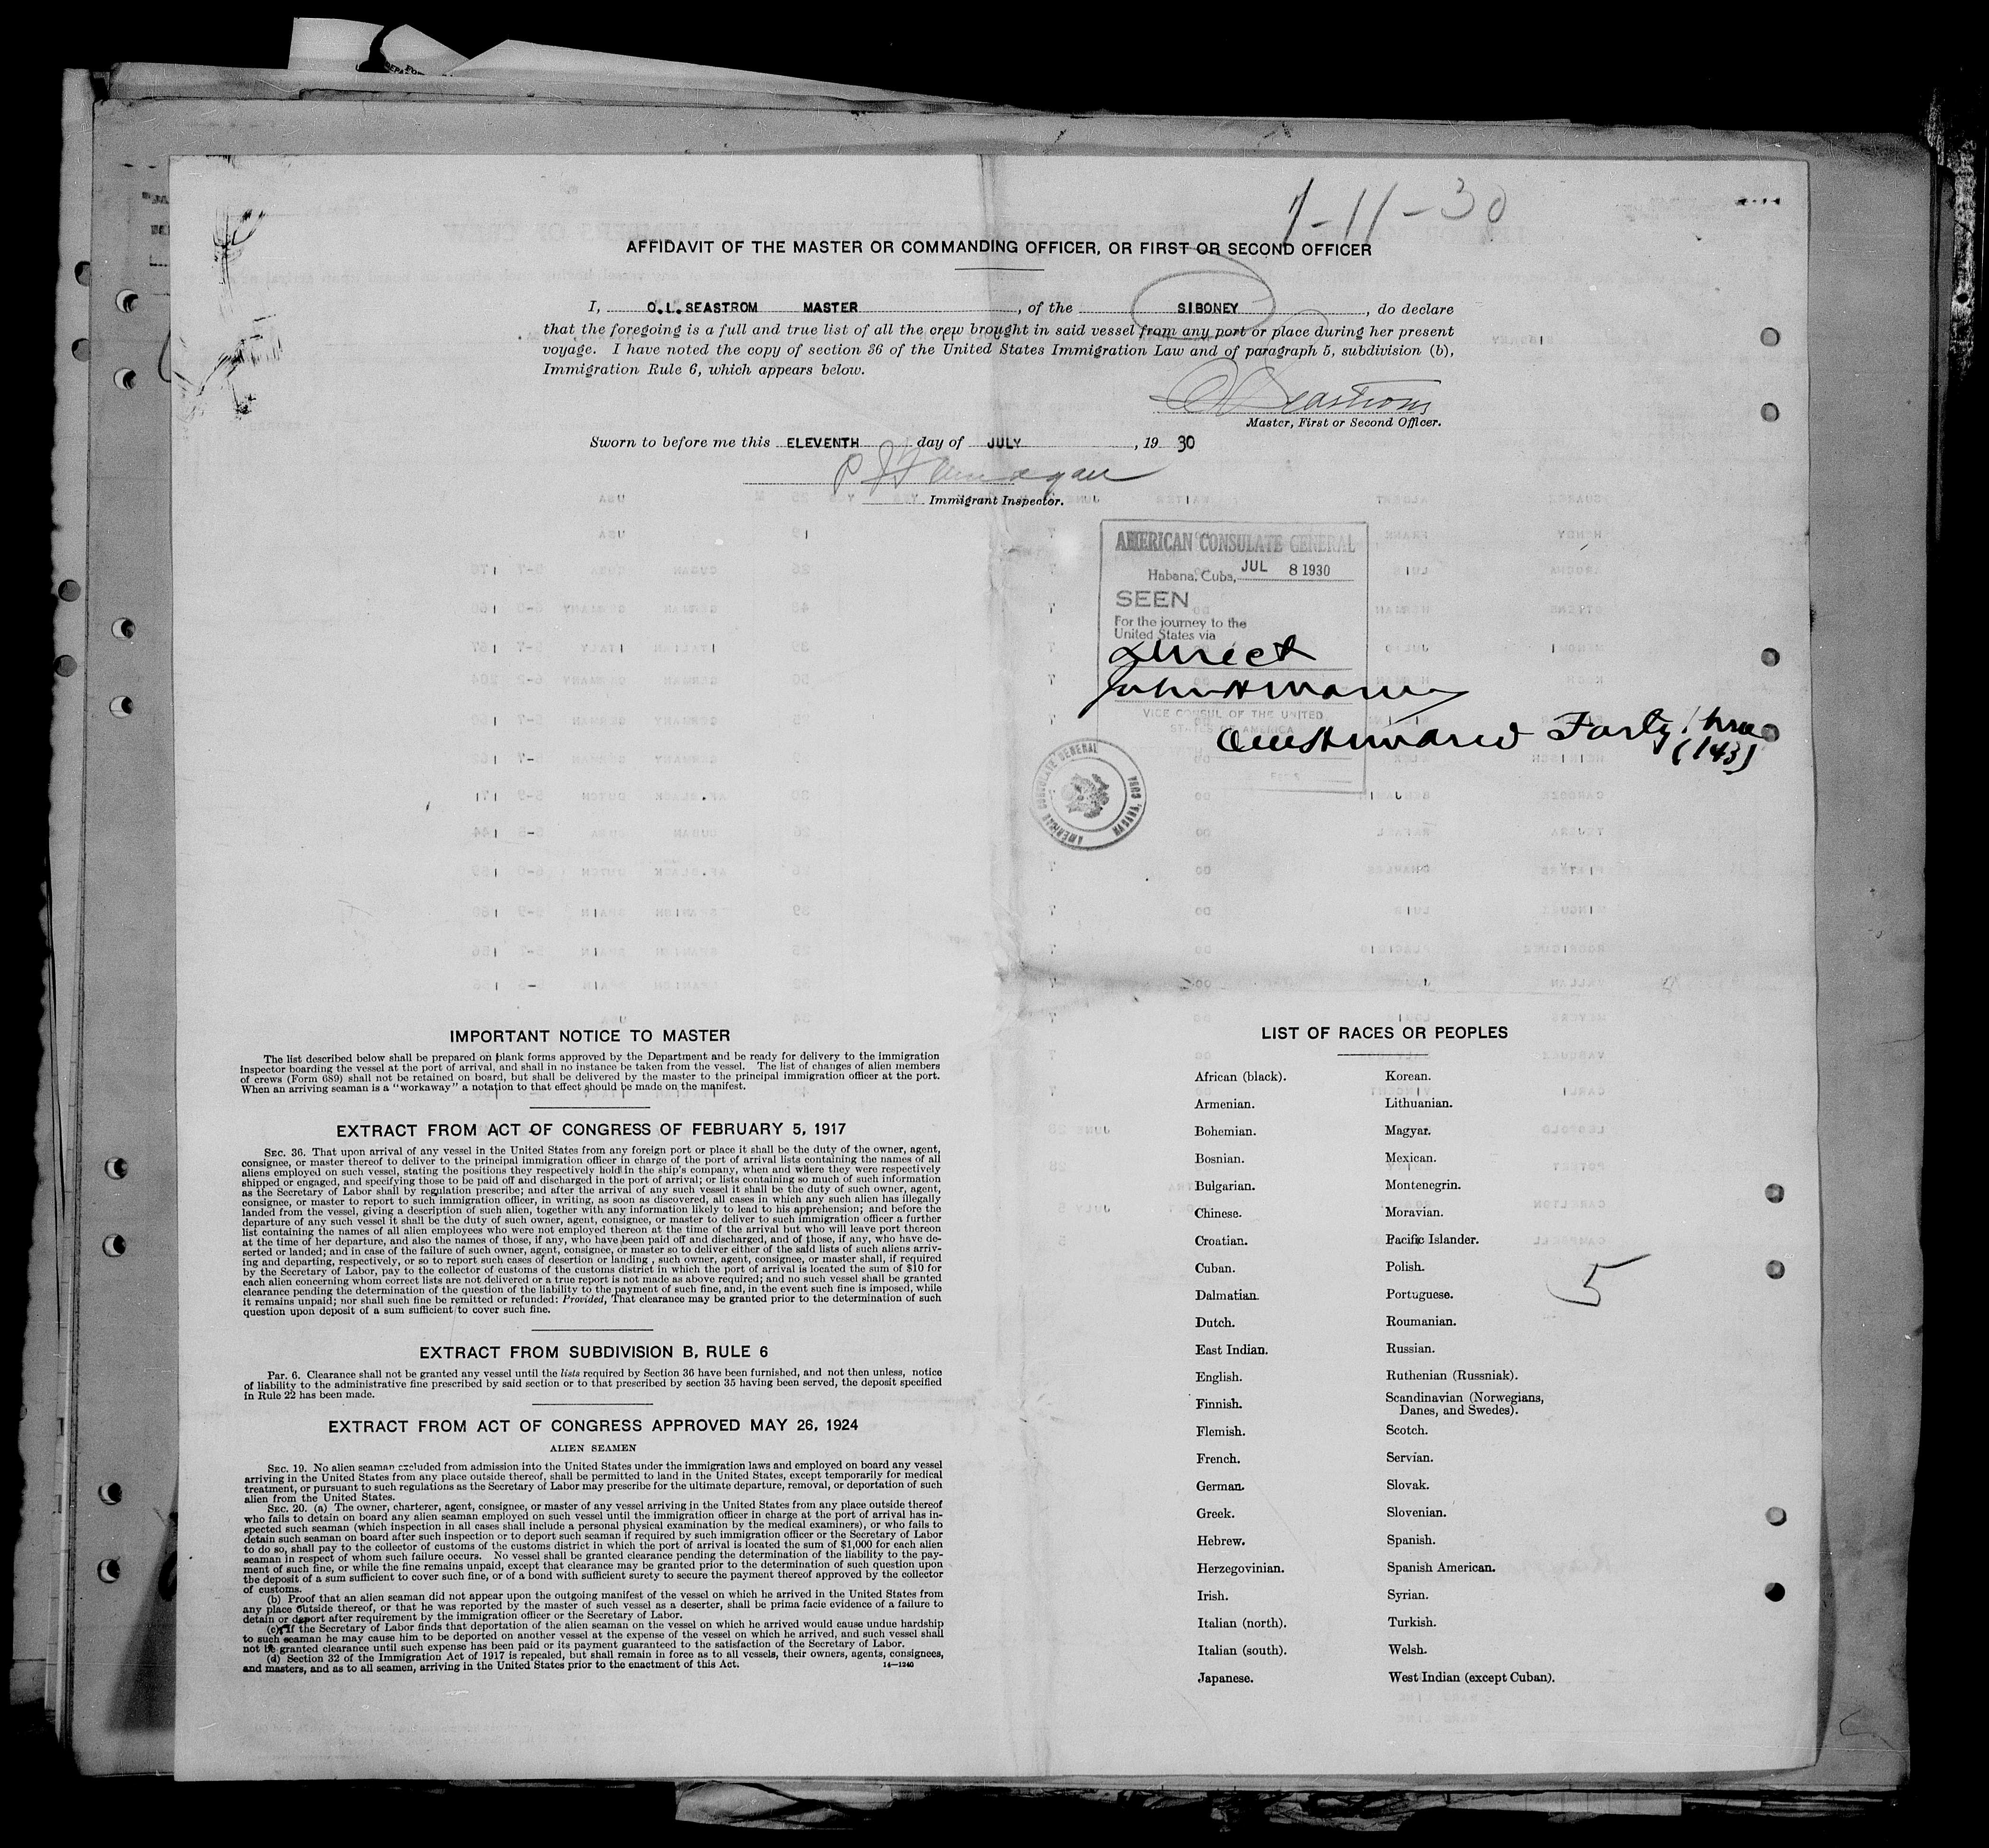 7-11-30
AFFIDAVIT OF THE MASTER OR COMMANDING OFFICER, OR FIRST OR SECOND OFFICER
I, O.L.SEASTROM MASTER, of the SIBONEY, do declare
that the foregoing is a full and true list of all the crew brought in said vessel from any port or place during her present
voyage. I have noted the copy of section 36 of the United States Immigration Law and of paragraph 5, subdivision (b),
Immigration Rule 6, which appears below.
O L Seastrom
Master, First or Second Officer.
Sworn to before me this ELEVENTH day of JULY, 19 30
Immigrant Inspector.
AMERICAN CONSULATE GENERAL
Habana, Cuba, JUL 8 1930
SEEN
For the journey to the
United States via
direct
VICE CONSUL OF THE UNITED
STATES OF AMERICA
One Hundred Forty three
(143)
AMERICAN CONSULATE GENERAL
HABANA, CUBA
IMPORTANT NOTICE TO MASTER
The list described below shall be prepared on blank forms approved by the Department and be ready for delivery to the immigration
inspector boarding the vessel at the port of arrival, and shall in no instance be taken from the vessel. The list of changes of alien members
of crews (Form 689) shall not be retained on board, but shall be delivered by the master to the principal immigration officer at the port.
When an arriving seaman is a "workaway" a notation to that effect should be made on the manifest.
EXTRACT FROM ACT OF CONGRESS OF FEBRUARY 5, 1917
SEC. 36. That upon arrival of any vessel in the United States from any foreign port or place it shall be the duty of the owner, agent,
consignee, or master thereof to deliver to the principal immigration officer in charge of the port of arrival lists containing the names of all
aliens employed on such vessel, stating the positions they respectively hold in the ship's company, when and where they were respectively
shipped or engaged, and specifying those to be paid off and discharged in the port of arrival; or lists containing so much of such information
as the Secretary of Labor shall by regulation prescribe; and after the arrival of any such vessel it shall be the duty of such owner, agent,
consignee, or master to report to such immigration officer, in writing, as soon as discovered, all cases in which any such alien has illegally
landed from the vessel, giving a description of such alien, together with any information likely to lead to his apprehension; and before the
departure of any such vessel it shall be the duty of such owner, agent, consignee, or master to deliver to such immigration officer a further
list containing the names of all alien employees who were not employed thereon at the time of the arrival but who will leave port thereon
at the time of her departure, and also the names of those, if any, who have been paid off and discharged, and of those, if any, who have de-
serted or landed; and in case of the failure of such owner, agent, consignee, or master so to deliver either of the said lists of such aliens arriv-
ing and departing, respectively, or so to report such cases of desertion or landing, such owner, agent, consignee, or master, shall, if required
by the Secretary of Labor, pay to the collector of customs of the customs district in which the port of arrival is located the sum of $10 for
each alien concerning whom correct lists are not delivered or a true report is not made as above required; and no such vessel shall be granted
clearance pending the determination of the question of the liability to the payment of such fine, and, in the event such fine is imposed, while
it remains unpaid; nor shall such fine be remitted or refunded: Provided, That clearance may be granted prior to the determination of such
question upon deposit of a sum sufficient to cover such fine.
EXTRACT FROM SUBDIVISION B, RULE 6
Par. 6. Clearance shall not be granted any vessel until the lists required by Section 36 have been furnished, and not then unless, notice
of liability to the administrative fine prescribed by said section or to that prescribed by section 35 having been served, the deposit specified
in Rule 22 has been made.
EXTRACT FROM ACT OF CONGRESS APPROVED MAY 26, 1924
ALIEN SEAMEN
SEC. 19. No alien seaman excluded from admission into the United States under the immigration laws and employed on board any vessel
arriving in the United States from any place outside thereof, shall be permitted to land in the United States, except temporarily for medical
treatment, or pursuant to such regulations as the Secretary of Labor may prescribe for the ultimate departure, removal, or deportation of such
alien from the United States.
SEC. 20. (a) The owner, charterer, agent, consignee, or master of any vessel arriving in the United States from any place outside thereof
who fails to detain on board any alien seaman employed on such vessel until the immigration officer in charge at the port of arrival has in-
spected such seaman (which inspection in all cases shall include a personal physical examination by the medical examiners), or who fails to
detain such seaman on board after such inspection or to deport such seaman if required by such immigration officer or the Secretary of Labor
to do so, shall pay to the collector of customs of the customs district in which the port of arrival is located the sum of $1,000 for each alien
seaman in respect of whom such failure occurs. No vessel shall be granted clearance pending the determination of the liability to the pay-
ment of such fine, or while the fine remains unpaid, except that clearance may be granted prior to the determination of such question upon
the deposit of a sum sufficient to cover such fine, or of a bond with sufficient surety to secure the payment thereof approved by the collector
of customs.
(b) Proof that an alien seaman did not appear upon the outgoing manifest of the vessel on which he arrived in the United States from
any place outside thereof, or that he was reported by the master of such vessel as a deserter, shall be prima facie evidence of a failure to
detain or deport after requirement by the immigration officer or the Secretary of Labor.
(c) If the Secretary of Labor finds that deportation of the alien seaman on the vessel on which he arrived would cause undue hardship
to such seaman he may cause him to be deported on another vessel at the expense of the vessel on which he arrived, and such vessel shall
not be granted clearance until such expense has been paid or its payment guaranteed to the satisfaction of the Secretary of Labor.
(d) Section 32 of the Immigration Act of 1917 is repealed, but shall remain in force as to all vessels, their owners, agents, consignees,
and masters, and as to all seamen, arriving in the United States prior to the enactment of this Act.
14—1240
LIST OF RACES OR PEOPLES
African (black).
Armenian.
Bohemian.
Bosnian.
Bulgarian.
Chinese.
Croatian.
Cuban.
Dalmatian.
Dutch.
East Indian.
English.
Finnish.
Flemish.
French.
German.
Greek.
Hebrew.
Herzegovinian.
Irish.
Italian (north).
Italian (south).
Japanese.
Korean.
Lithuanian.
Magyar.
Mexican.
Montenegrin.
Moravian.
Pacific Islander.
Polish.
Portuguese.
Roumanian.
Russian.
Ruthenian (Russniak).
Scandinavian (Norwegians,
Danes, and Swedes).
Scotch.
Servian.
Slovak.
Slovenian.
Spanish.
Spanish American.
Syrian.
Turkish.
Welsh.
West Indian (except Cuban).
5